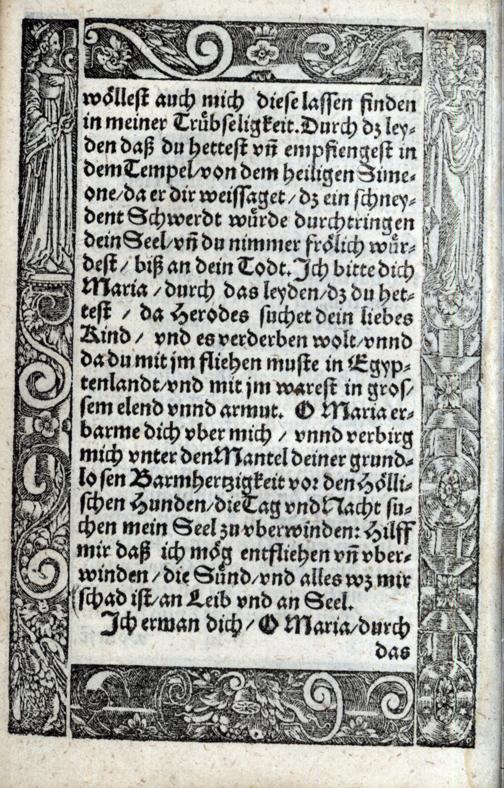 wöllest auch mich diese lassen finden
in meiner Trübseligkeit. Durch dz ley-
den daß du hettest vn̄ empfiengest in
dem Tempel/von dem heiligen Sime-
one/da er dir weissaget/dz ein schney-
dent Schwerdt würde durchtringen
dein Seel/vn̄ du nimmer frölich wür-
dest/biß an dein Todt. Ich bitte dich
Maria/durch das leyden/dz du het-
test/da Herodes suchet dein liebes
Kind/vnd es verderben wolt/vnnd
da du mit jm fliehen muste in Egyp-
tenlandt/vnd mit jm warest in gros/
sem elend vnnd armut. O Maria er-
barme dich vber mich/vnnd verbirg
mich vnter den Mantel deiner grund-
losen Barmhertzigkeit vor den Hölli-
schen Hunden/die Tag vnd Nacht su-
chen mein Seel zu vberwinden: Hilff
mir daß ich mög entfliehen vn̄ vber-
winden/die Sünd/vnd alles wz mir
schad ist/an Leib vnd an Seel.
Ich erman dich/O Maria/durch
das